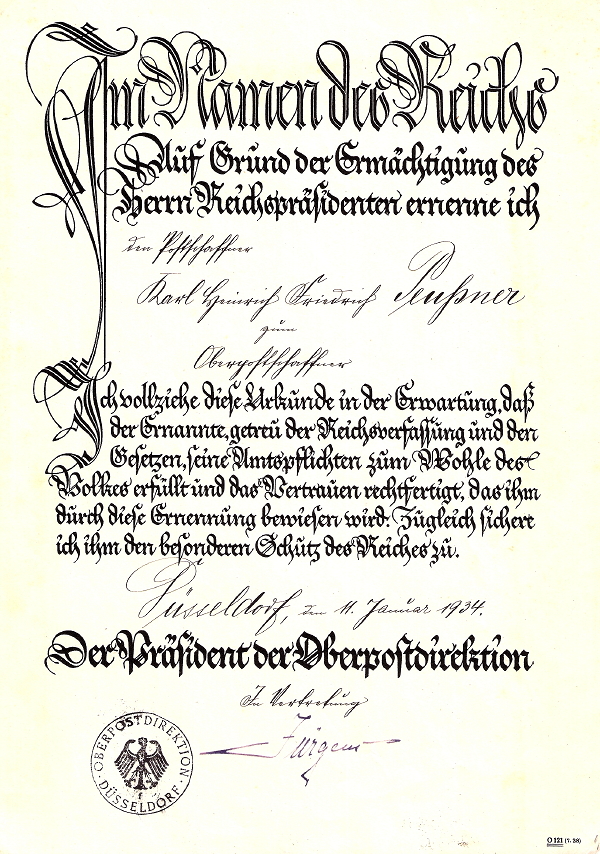 Im Namen des Reichs
Auf Grund der Ermächtigung des
Herrn Reichspräsidenten ernenne ich
den Postschaffner
Karl Heinrich Friedrich Peußner
zum
Oberpostschaffner
Ich vollziehe diese Urkunde in der Erwartung, daß
der Ernannte, getreu der Reichsverfassung und den
Gesetzen, seine Amtspflichten zum Wohle des
Volkes erfüllt und das Vertrauen rechtfertigt, das ihm
durch diese Ernennung bewiesen wird. Zugleich sichert
ich ihm den besonderen Schutz des Reiches zu.
Düsseldorf, den 11. Januar 1934.
Der Präsident der Oberpostdirektion
In Vertretung
Jürgens
OBERPOSTDIREKTION
DÜSSELDORF
O 121 (7. 33)